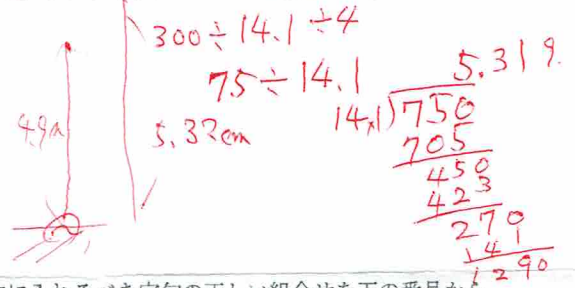 300÷14.1÷4
75÷14.1
4.9m
5.32cm
5.319.
14.1)750
705
450
423
270
141
1290
に入れるべき字句の正しい組合せを下の番号から